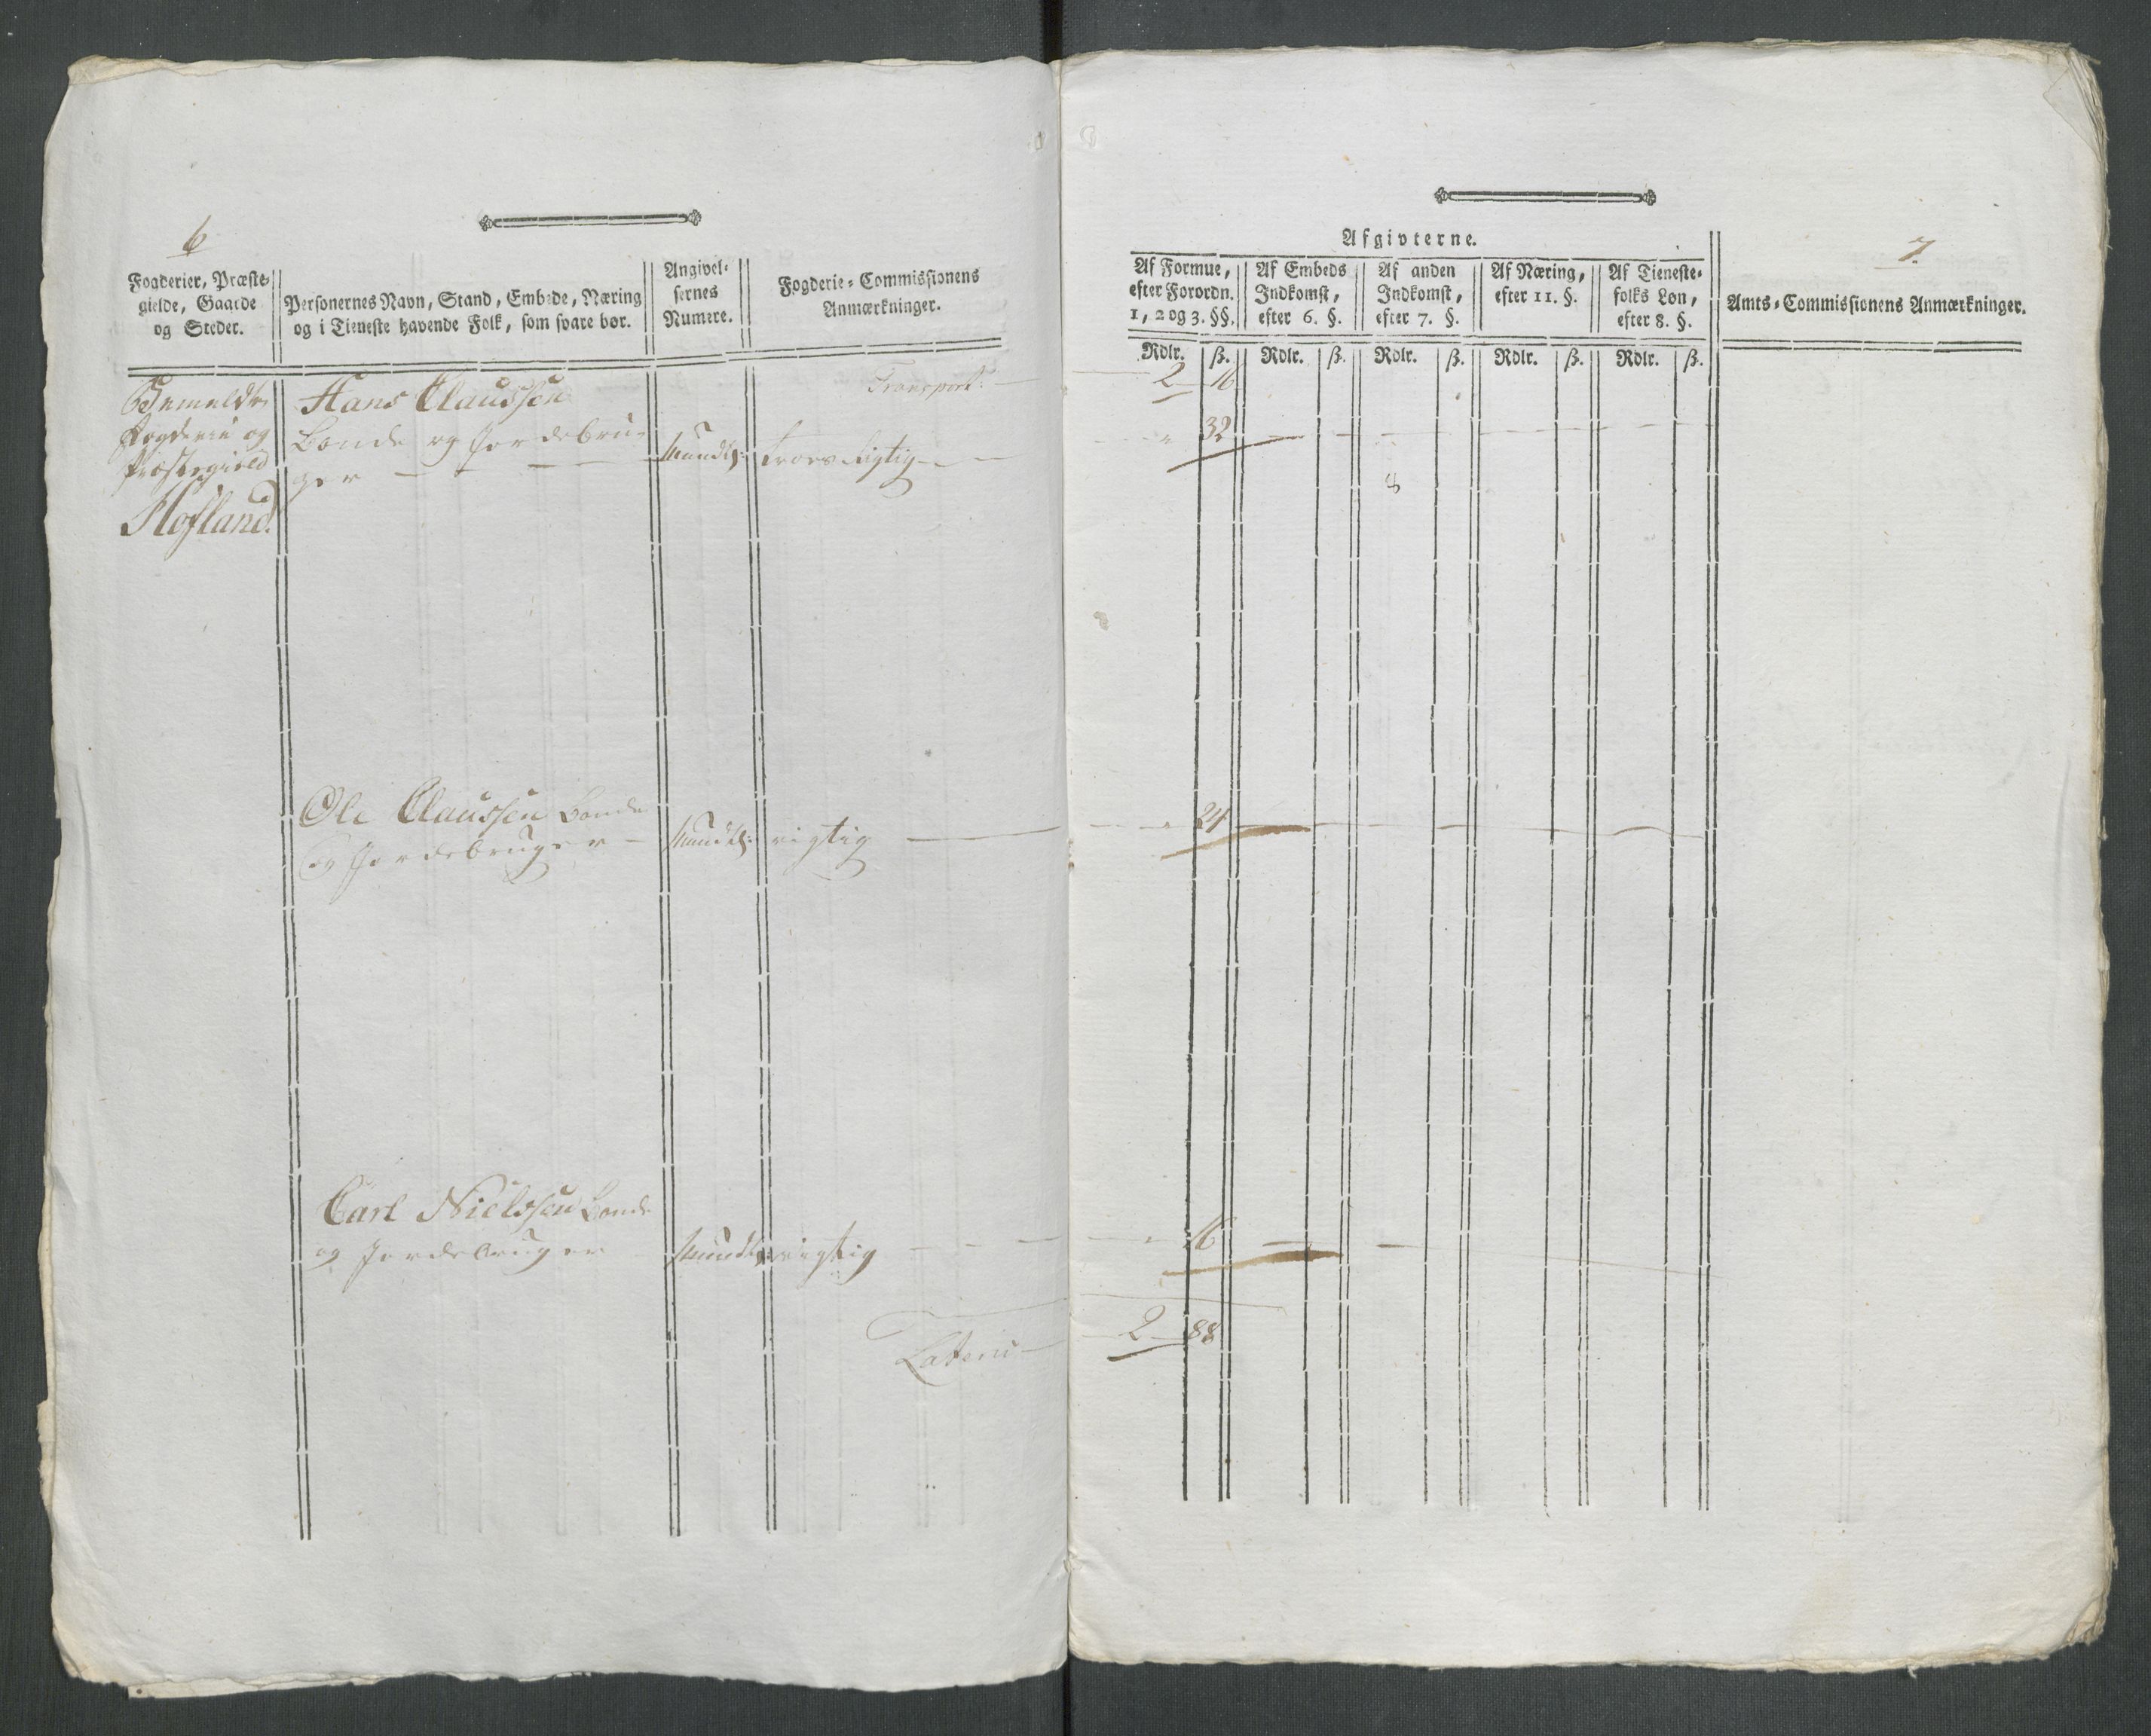 6
Fogderier, Præste-
gielde, Gaarde
og Steder.
Personernes Navn, Stand, Embede, Næring
og i Tieneste havende Folk, som svare bør.
Angivel-
sernes
Numere.
Fogderie-Commissionens
Anmærkninger.
Transport:
Bemeldte
Fogderie og
Præstegield
Hofland.
Hans Claussen
Bonde og Jordebru-
ger
Mundtl:
Troværdigtig
Ole Claussen Bonde
og Jordebruger
Mundtl:
rigtig
Carl Nielssen Bonde
og Jordebruger
Mundtl:
rigtig
Lateris
7
Afgivterne.
Af Formue,
efter Forordn.
1, 2 og 3. §§.
Af Embeds
Indkomst,
efter 6. §.
Af anden
Indkomst,
efter 7. §.
Af Næring,
efter 11. §.
Af Tieneste-
folks Løn,
efter 8. §.
Amts-Commissionens Anmærkninger.
Rdlr. ß. Rdlr. ß. Rdlr. ß. Rdlr. ß. Rdlr. ß.
2 16
" 32
8
" 24
" 16
2 88